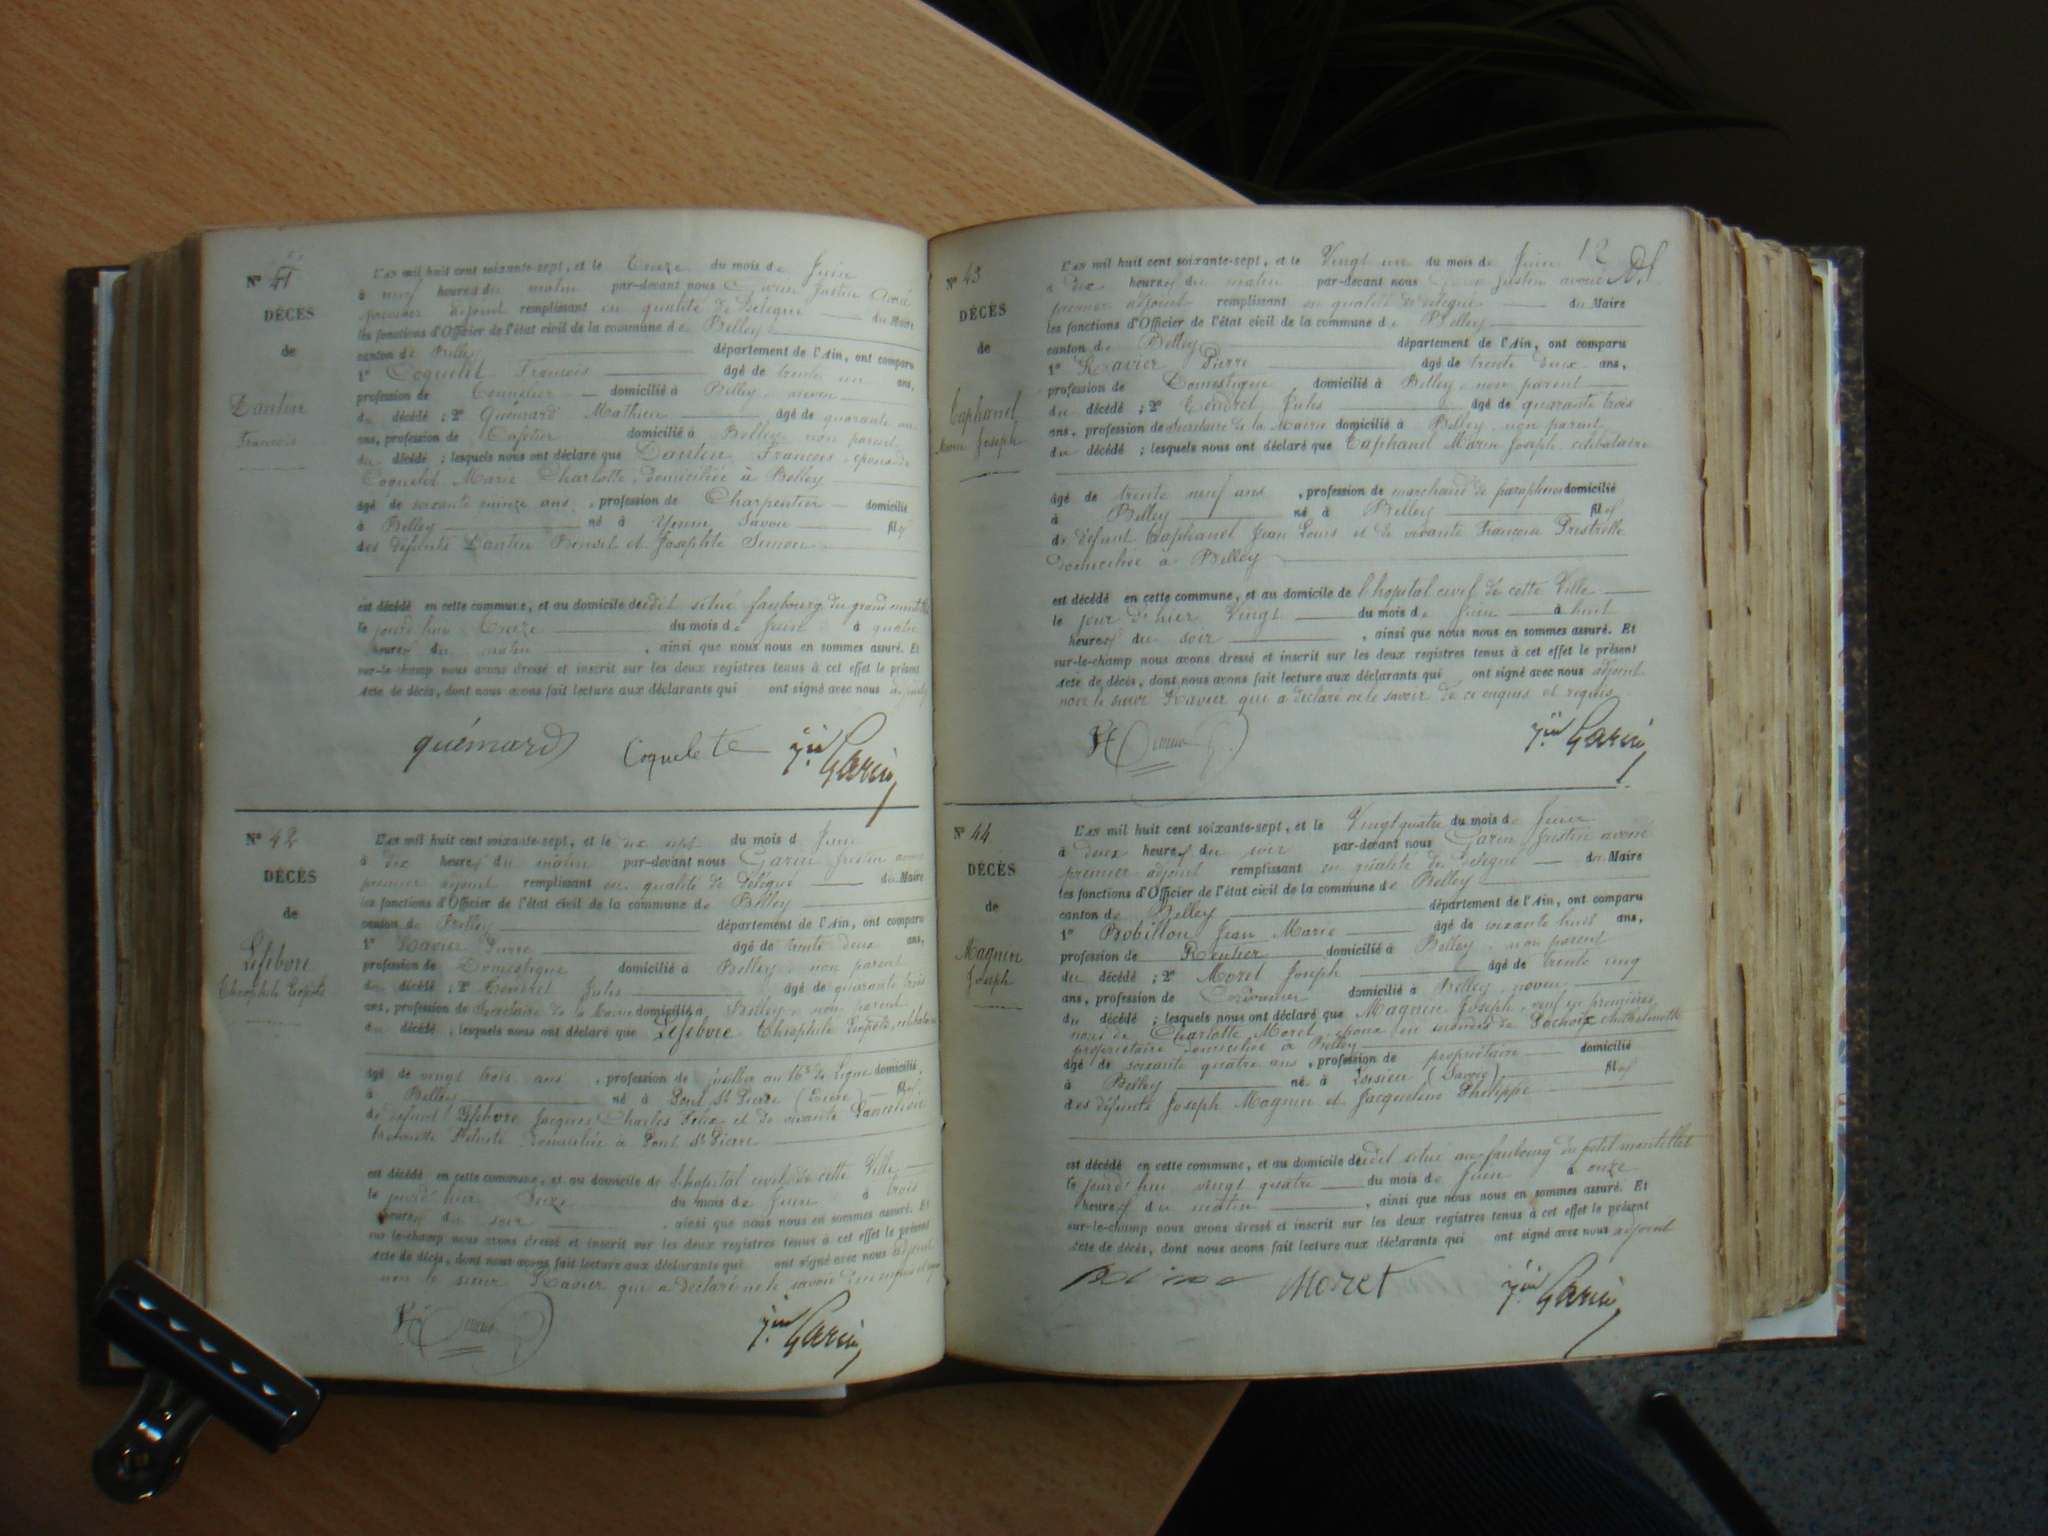 Nº 41
DÉCÈS
de
Dantin
François
L'an mil huit cent soixante-sept, et le Onze du mois de Juin
à neuf heures du matin par-devant nous Garin Justin Avoué
premier adjoint remplissant en qualité de Délégué du Maire
les fonctions d'Officier de l'état civil de la commune de Belley
canton de Belley département de l'Ain, ont comparu
1º Coquelet François âgé de trente un ans,
profession de domicilié à Belley neveu
du décédé ; 2º Quémard Mathieu âgé de quarante un
ans, profession de Cafetier domicilié à Belley non parent
du décédé ; lesquels nous ont déclaré que Dantin François, époux de
Coquelet Marie Charlotte, domiciliée à Belley
âgé de soixante quinze ans, profession de Charpentier domicilié
à Belley né à Yenne Savoie fils
des défunts Dantin Benoit et Josephte Simon
est décédé en cette commune, et au domicile dudit situé faubourg du grand
le jourd'hui Onze du mois de Juin à quatre
heures du matin, ainsi que nous nous en sommes assuré. Et
sur-le-champ nous avons dressé et inscrit sur les deux registres tenus à cet effet le présent
acte de décès, dont nous avons fait lecture aux déclarants qui ont signé avec nous adjoint
quémard Coquelete Jin Garin
Nº 42
DÉCÈS
de
Lefebvre
Théophile Léopold
L'an mil huit cent soixante-sept, et le dix sept du mois d Juin
à dix heures du matin par-devant nous Garin Justin avoué
premier adjoint remplissant en qualité de Délégué du Maire
les fonctions d'Officier de l'état civil de la commune de Belley
canton de Belley département de l'Ain, ont comparu
1º Ravier Pierre âgé de trente deux ans,
profession de Domestique domicilié à Belley non parent
du décédé ; 2º Tendret Jules âgé de quarante trois
ans, profession de Secrétaire de la Mairie domicilié à Belley, non parent
du décédé ; lesquels nous ont déclaré que Lefebvre Théophile Léopold, célibataire
âgé de vingt trois ans, profession de fusilier au 16e de Ligne domicilié
à Belley né à Pont St Pierre (Eure) fils
de défunt Lefebvre Jacques Charles Félix et de vivante
domiciliée à Pont St Pierre
est décédé en cette commune, et au domicile de l'hopital civil de cette Ville
le jourd'hier Seize du mois de Juin à trois
heures du soir, ainsi que nous nous en sommes assuré. Et
sur-le-champ nous avons dressé et inscrit sur les deux registres tenus à cet effet le présent
acte de décès, dont nous avons fait lecture aux déclarants qui ont signé avec nous adjoint
non le sieur Ravier qui a déclaré ne le savoir de ce enquis et requis
Jin Garin
12
Nº 43
DÉCÈS
de
Caphanel
Marin Joseph
L'an mil huit cent soixante-sept, et le Vingt un du mois de Juin
à dix heures du matin par-devant nous Garin Justin avoué
premier adjoint remplissant en qualité de délégué du Maire
les fonctions d'Officier de l'état civil de la commune de Belley
canton de Belley département de l'Ain, ont comparu
1º Ravier Pierre âgé de trente deux ans,
profession de Domestique domicilié à Belley non parent
du décédé ; 2º Tendret Jules âgé de quarante trois
ans, profession de Secrétaire de la Mairie domicilié à Belley non parent
du décédé ; lesquels nous ont déclaré que Caphanel Marin Joseph célibataire
âgé de trente neuf ans, profession de marchand de parapluies domicilié
à Belley né à Belley fils
de défunt Caphanel Jean Louis et de vivante Françoise
domiciliée à Belley
est décédé en cette commune, et au domicile de l'hopital civil de cette Ville
le jour d'hier Vingt du mois de Juin à huit
heures du soir, ainsi que nous nous en sommes assuré. Et
sur-le-champ nous avons dressé et inscrit sur les deux registres tenus à cet effet le présent
acte de décès, dont nous avons fait lecture aux déclarants qui ont signé avec nous adjoint
non le sieur Ravier qui a déclaré ne le savoir de ce enquis et requis
Jin Garin
Nº 44
DÉCÈS
de
Magnin
Joseph
L'an mil huit cent soixante-sept, et le Vingt quatre du mois de Juin
à deux heures du soir par-devant nous Garin Justin avoué
premier adjoint remplissant en qualité de Délégué du Maire
les fonctions d'Officier de l'état civil de la commune de Belley
canton de Belley département de l'Ain, ont comparu
1º Robillon Jean Marie âgé de soixante huit ans,
profession de Rentier domicilié à Belley, non parent
du décédé ; 2º Moret Joseph âgé de trente cinq
ans, profession de Cordonnier domicilié à Belley, neveu
du décédé ; lesquels nous ont déclaré que Magnin Joseph, veuf en premières
noces de Charlotte Moret, époux en secondes de
propriétaire domiciliée à Belley
âgé de soixante quatre ans, profession de propriétaire domicilié
à Belley né à Loisieu (Savoie) fils
des défunts Joseph Magnin et Jacqueline Philippe
est décédé en cette commune, et au domicile dudit situé au faubourg du petit
le jourd'hui vingt quatre du mois de Juin à onze
heures du matin, ainsi que nous nous en sommes assuré. Et
sur-le-champ nous avons dressé et inscrit sur les deux registres tenus à cet effet le présent
acte de décès, dont nous avons fait lecture aux déclarants qui ont signé avec nous adjoint
Moret Jin Garin